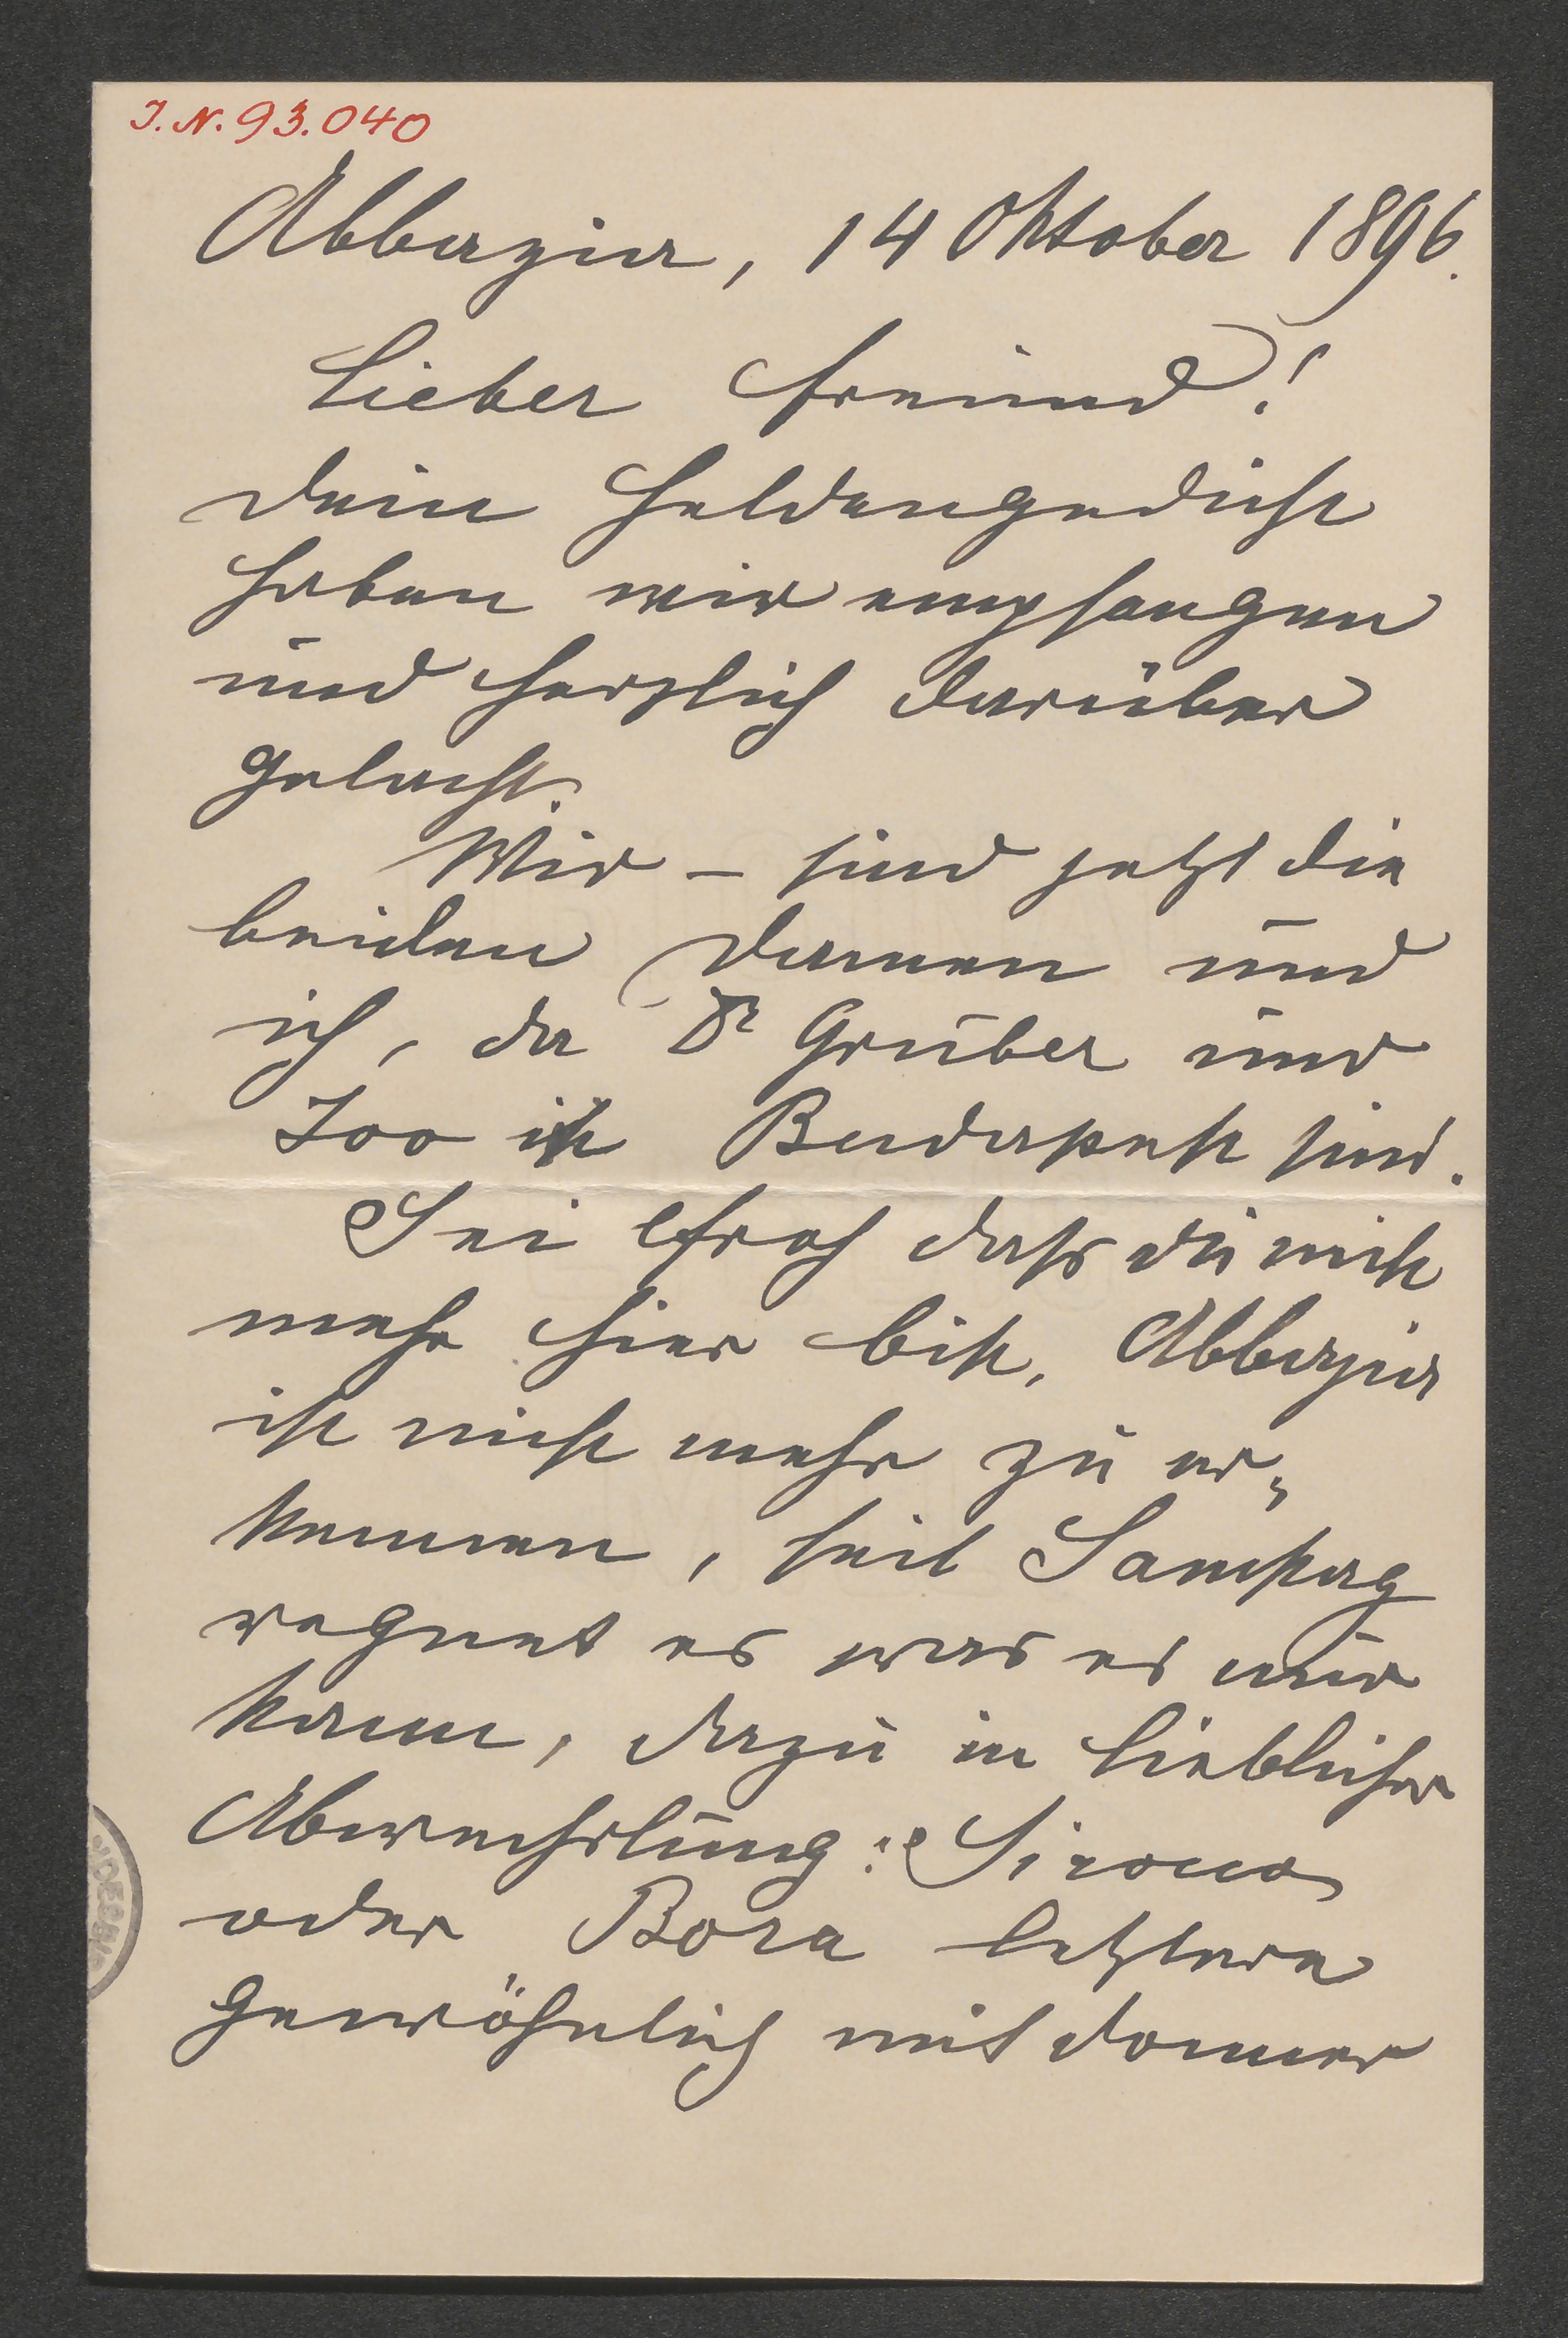 I.N. 93.040
Abbazia, 14 Oktober 1896.
Lieber Freund!
Dein Heldengedicht
haben wir empfangen
und herzlich darüber
gelacht.
Wir – sind jetzt die
beiden Damen und
ich, da Dr Gruber und
Joo in Budapest sind.
Sei froh dass du nicht
mehr hier bist, Abbazia
ist nicht mehr zu er„
kennen, seit Samstag
regnet es was es nur
kann, dazu in lieblicher
Abwechslung: Sirocco
oder Bora letztere
gewöhnlich mit Donner